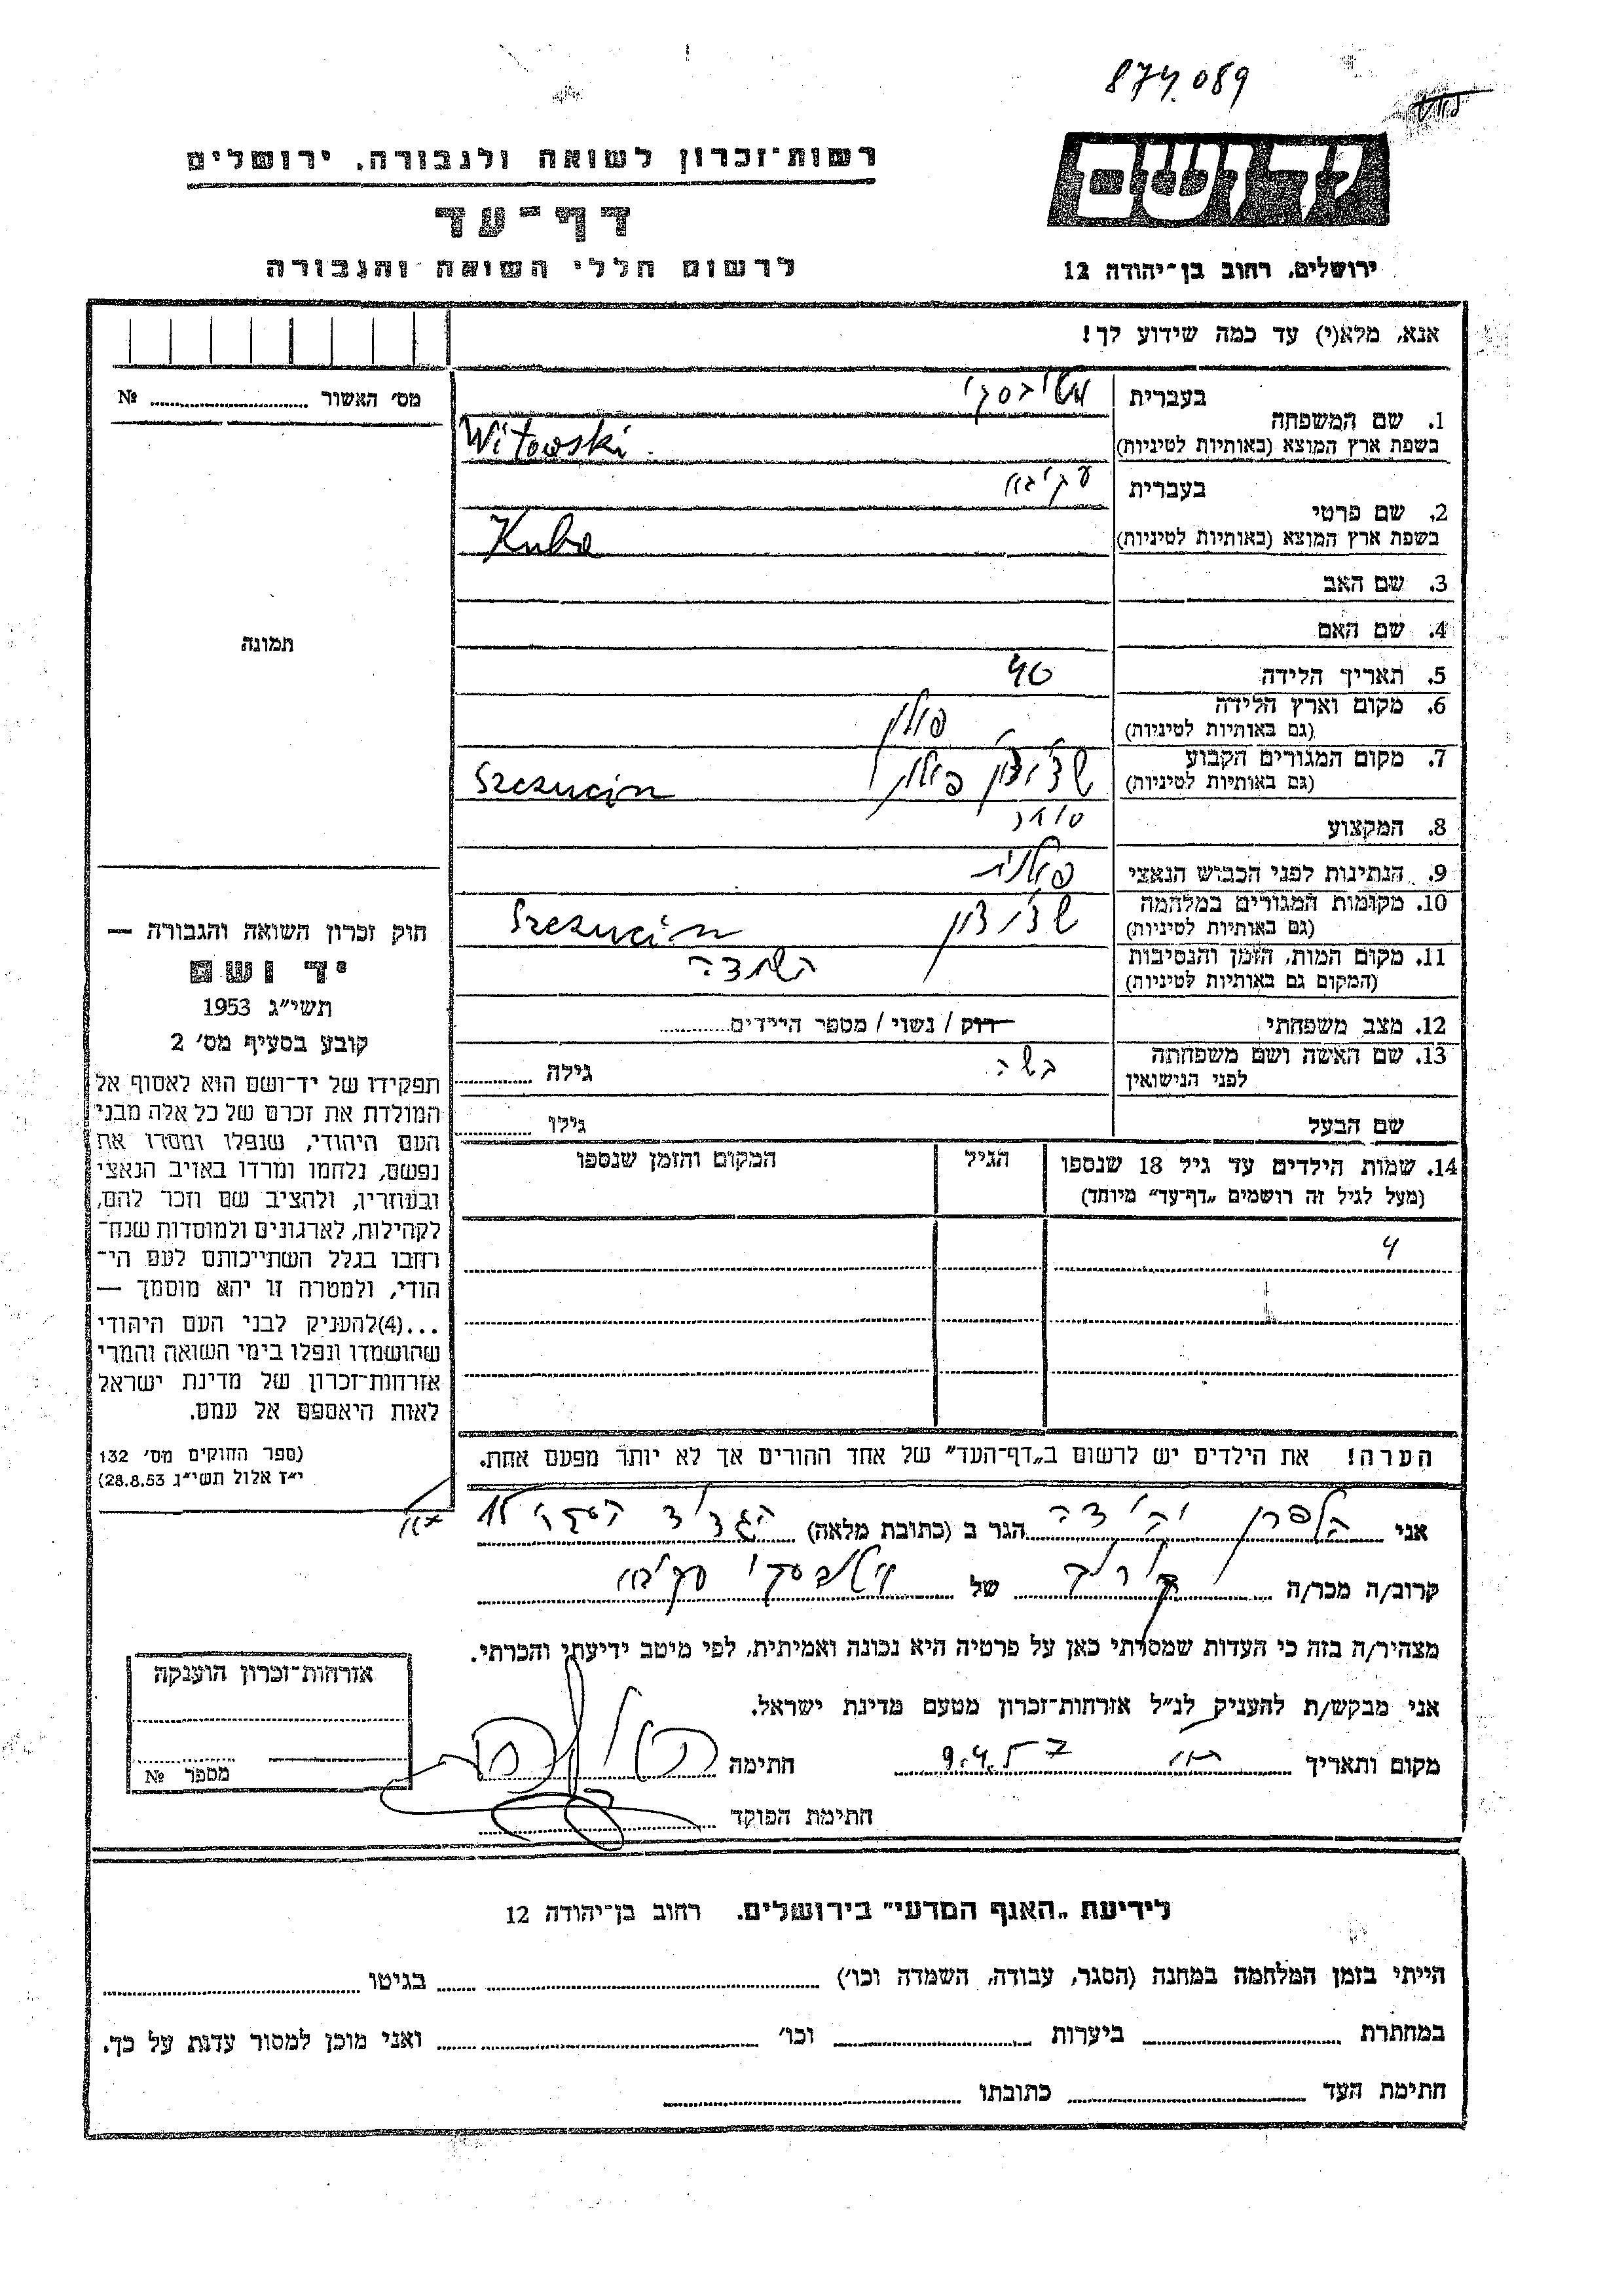 874.089
רשות־זכרון לשואה ולגבורה, ירושלים
יד ושם
דף־עד
לרשום חללי השואה והגבורה
ירושלים, רחוב בן־יהודה 12
אנא, מלא(י) עד כמה שידוע לך!
מס׳ האשור ........ №
1. שם המשפחה
בעברית
בשפת ארץ המוצא (באותיות לטיניות) Witowski
2. שם פרטי
בעברית עקיבא
בשפת ארץ המוצא (באותיות לטיניות) Kuba
3. שם האב
4. שם האם
תמונה
5. תאריך הלידה 40
6. מקום וארץ הלידה פולין
(גם באותיות לטיניות)
7. מקום המגורים הקבוע פולין Szczucin
(גם באותיות לטיניות)
8. המקצוע סוחר
9. הנתינות לפני הכבוש הנאצי פולנית
10. מקומות המגורים במלחמה Szczucin
(גם באותיות לטיניות)
11. מקום המות, הזמן והנסיבות השמדה
(המקום גם באותיות לטיניות)
12. מצב משפחתי רווק / נשוי / מספר הילדים........
13. שם האשה ושם משפחתה גילה ........
לפני הנישואין
שם הבעל גילו ........
14. שמות הילדים עד גיל 18 שנספו הגיל המקום והזמן שנספו
(מעל לגיל זה רושמים „דף־עד” מיוחד)
4
הערה! את הילדים יש לרשום ב„דף־העד” של אחד ההורים אך לא יותר מפעם אחת.
חוק זכרון השואה והגבורה —
יד ושם
תשי״ג 1953
קובע בסעיף מס׳ 2
תפקידו של יד־ושם הוא לאסוף אל
המולדת את זכרם של כל אלה מבני
העם היהודי, שנפלו ומסרו את
נפשם, נלחמו ומרדו באויב הנאצי
ובעוזריו, ולהציב שם וזכר להם,
לקהילות, לארגונים ולמוסדות שנח־
רחבו בגלל השתייכותם לעם הי־
הודי, ולמטרה זו יהא מוסמך —
...(4)להעניק לבני העם היהודי
שהושמדו ונפלו בימי השואה והמרי
אזרחות־זכרון של מדינת ישראל
לאות היאספם אל עמם.
(ספר החוקים מס׳ 132
י״ז אלול תשי״ג 28.8.53)
אני הלפרן יהודה הגר ב (כתובת מלאה) 15
קרוב/ה מכר/ה קרוב של ויטובסקי עקיבא
מצהיר/ה בזה כי העדות שמסרתי כאן על פרטיה היא נכונה ואמיתית, לפי מיטב ידיעתי והכרתי.
אני מבקש/ת להעניק לנ״ל אזרחות־זכרון מטעם מדינת ישראל.
מקום ותאריך 9.4.57 חתימה
חתימת הפוקד
אזרחות־זכרון הוענקה
מספר №
לידיעת „האגף המדעי” בירושלים, רחוב בן־יהודה 12
הייתי בזמן המלחמה במחנה (הסגר, עבודה, השמדה וכו׳) ........ בגיטו ........
במחתרת ........ ביערות ........ וכו׳ ........ ואני מוכן למסור עדות על כך.
חתימת העד ........ כתובתו ........